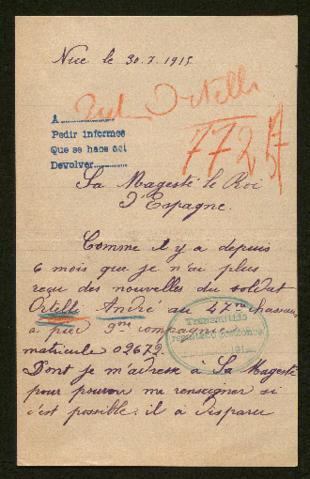 Nice le 30.7.1915
Ortelli
A
Pedir informes
Que se hace así
Devolver
7725
Sa Magesté le Roi
D'Espagne.
Comme il y a depuis
6 mois que je n'ai plus
reçu des nouvelles du soldat
Ortelli André au 47me chasseurs
a pied 9me compagnie
matricule 02672.
Dont je m'adresse a Sa Magesté
pour pouvoir me renseigner si
c'est possible. il à disparu